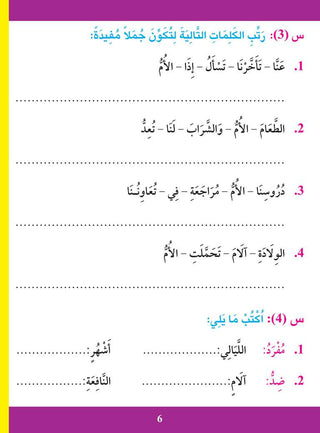 س (3): رَتِّبِ الكَلِمَاتِ التَّالِيَةَ لِتُكَوِّنَ جُمَلاً مُفِيدَةً:
1. عَنَّا – تَأَخَّرْنَا – تَسْأَلُ – إِذَا – الأُمُّ
................................................
2. الطَّعَامَ – الأُمُّ – وَالشَّرَابَ – لَنَا – تُعِدُّ
................................................
3. دُرُوسِنَا – الأُمُّ – مُرَاجَعَةِ – فِي – تُعَاوِنُنَا
................................................
4. الوِلَادَةِ – آلَامَ – تَحَمَّلَتِ – الأُمُّ
................................................
س (4): اُكْتُبْ مَا يَلِي:
1. مُفْرَدُ: اللَّيَالِي:.................. أَشْهُرٍ:..................
2. ضِدُّ: آلَامٍ:.................. النَّافِعَةِ:..................
6